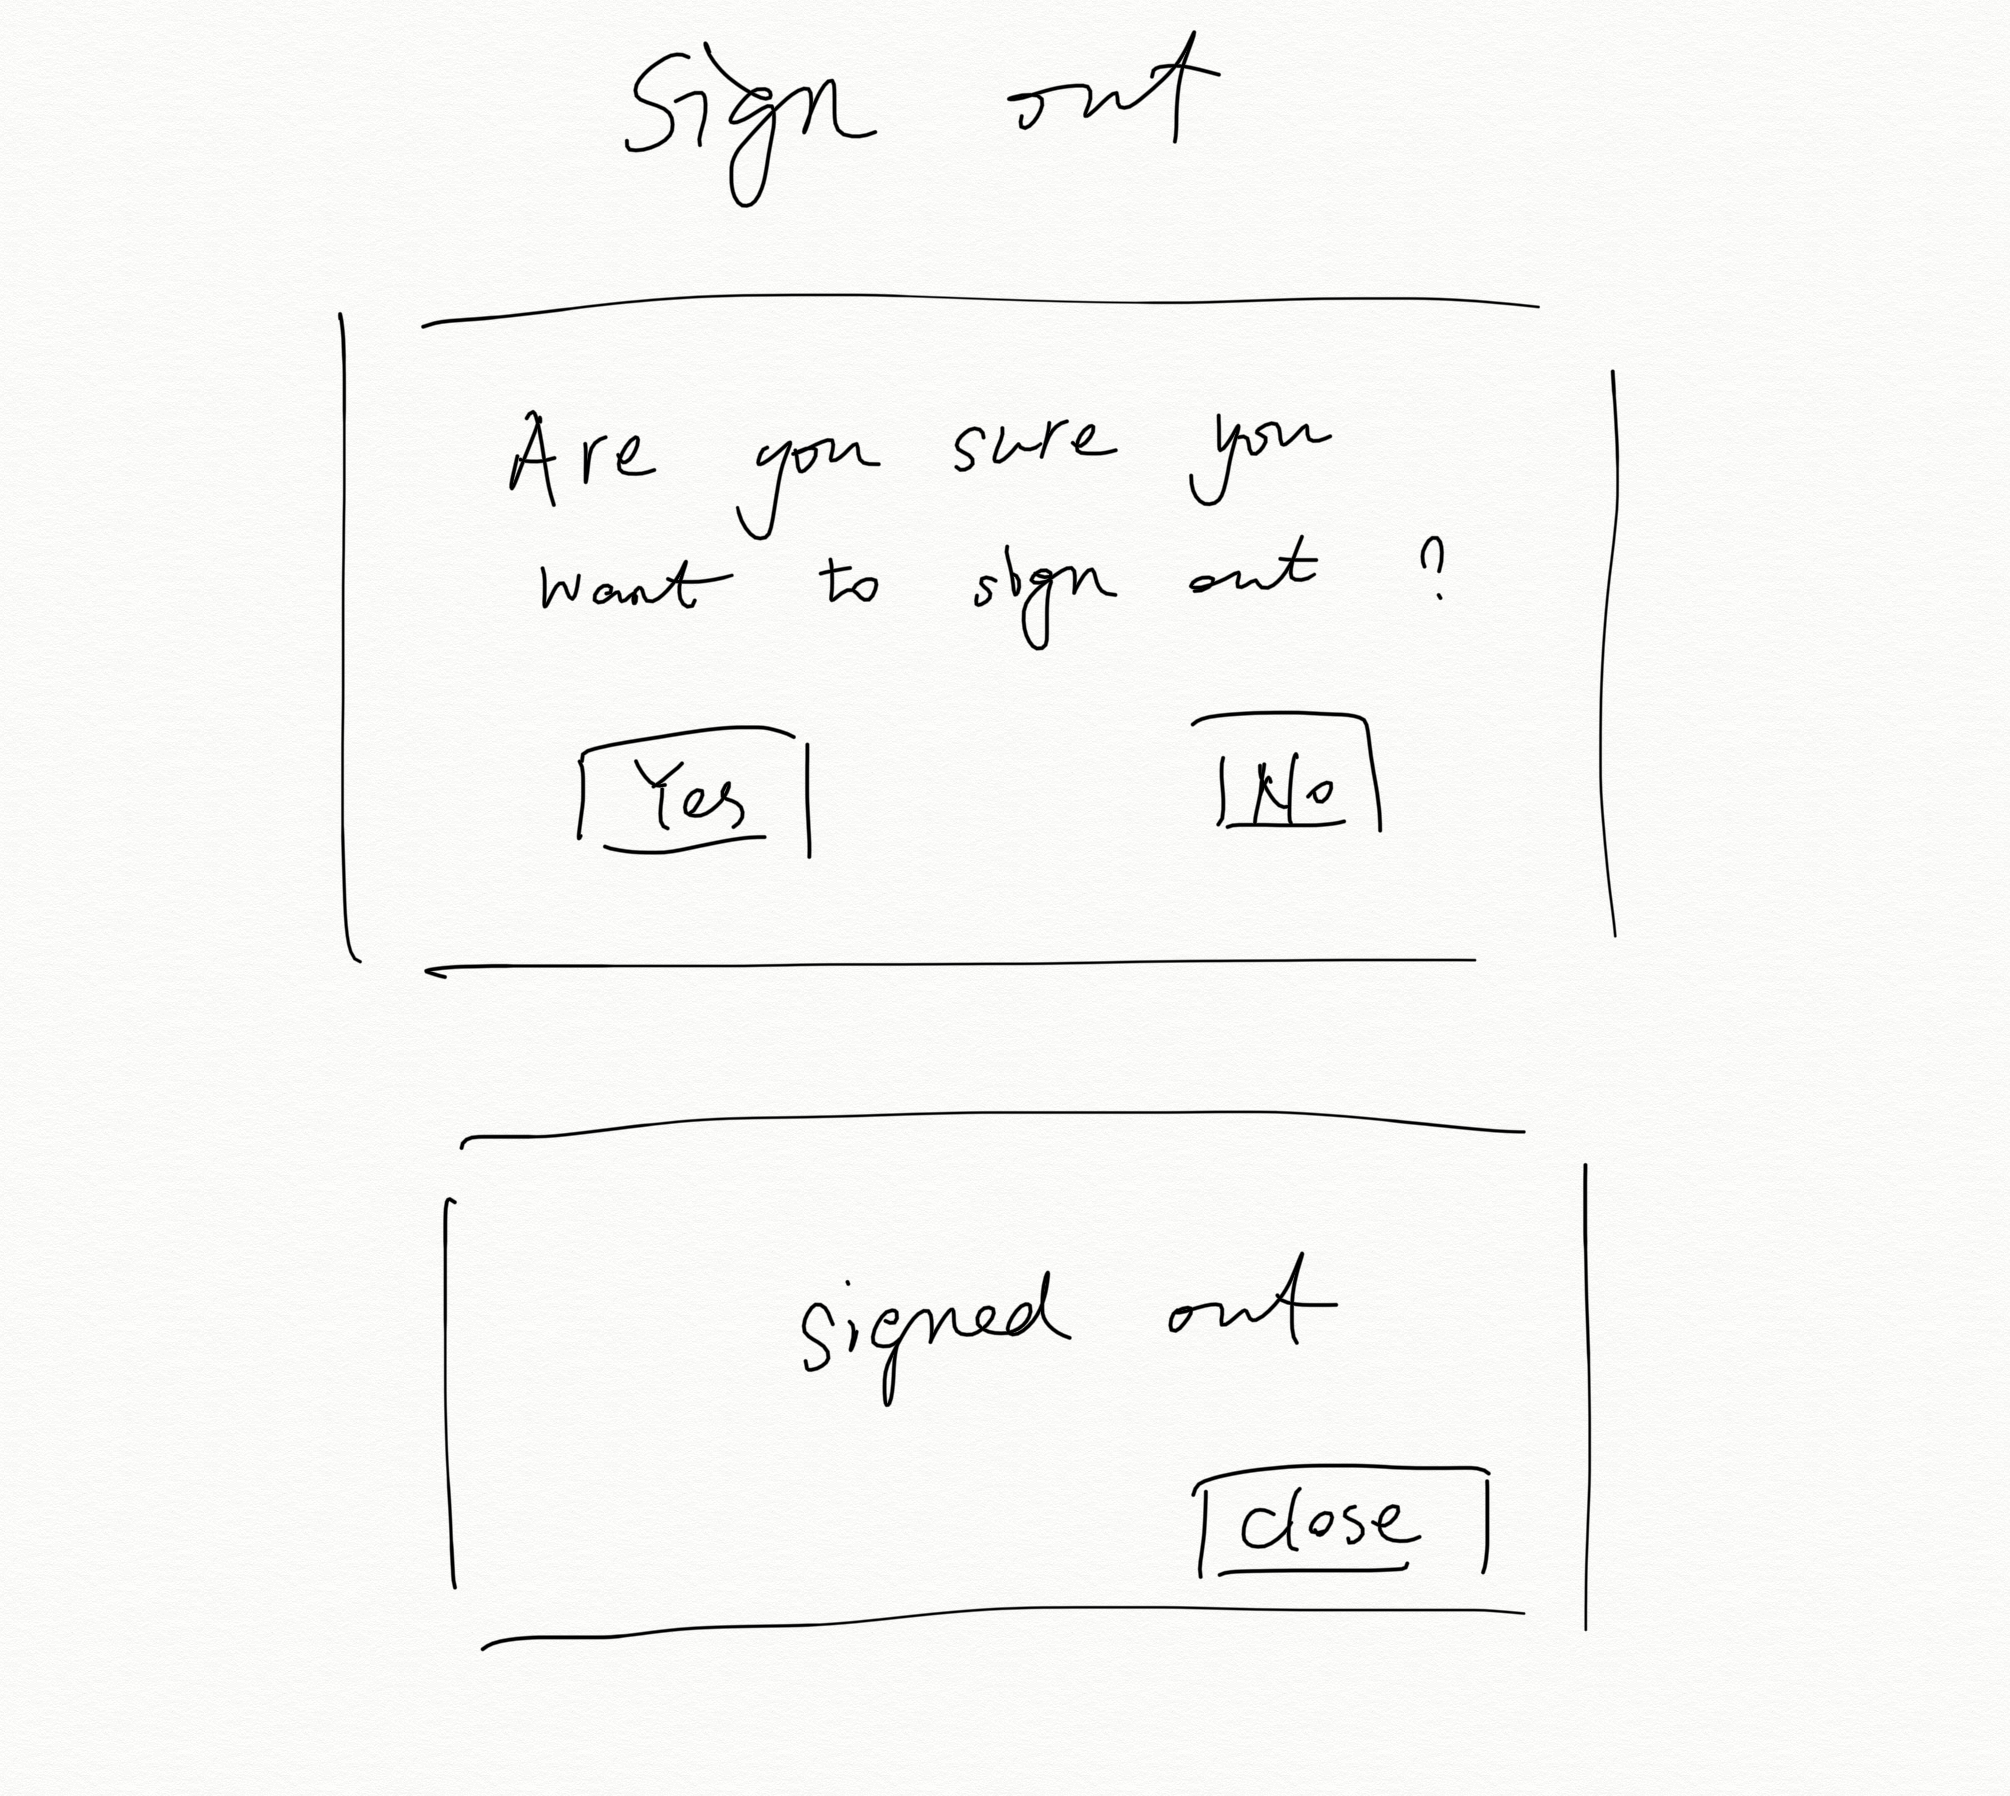 Sign out
Are you sure you
want to sign out ?
Yes
No
signed out
close